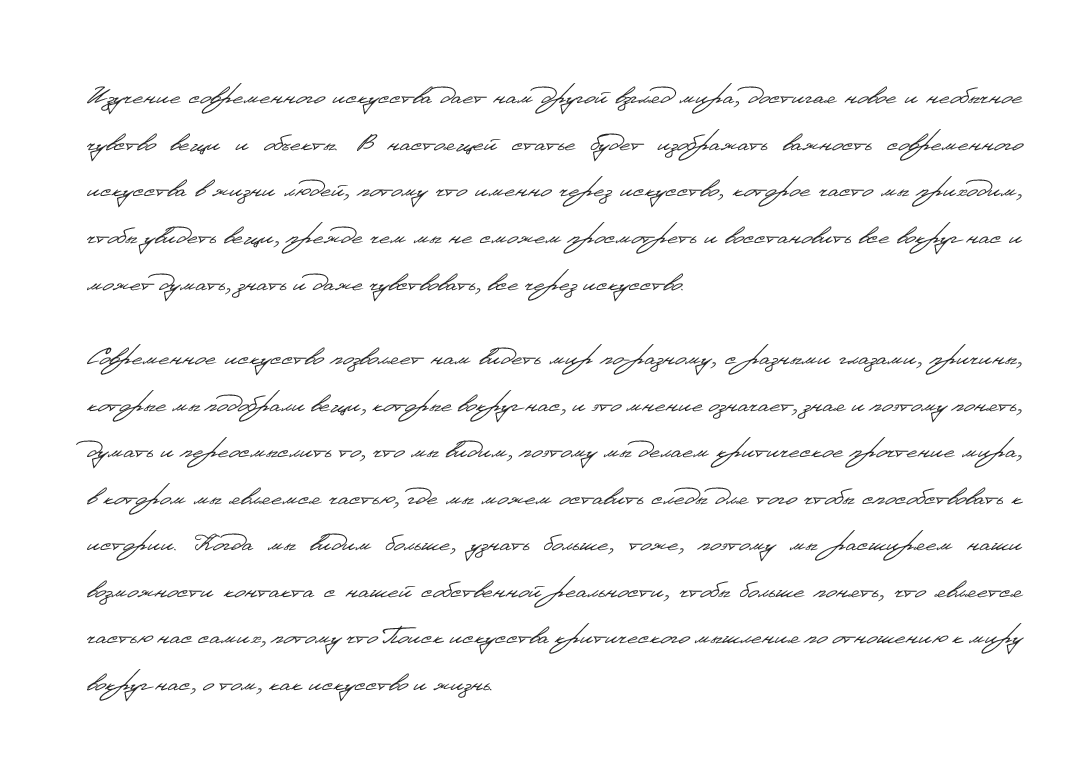 Изучение современного искусства дает нам другой взгляд мира, достигая новое и необычное
чувство вещи и объекты. В настоящей статье будет изображать важность современного
искусства в жизни людей, потому что именно через искусство, которое часто мы приходим,
чтобы увидеть вещи, прежде чем мы не сможем просмотреть и восстановить все вокруг нас и
может думать, знать и даже чувствовать, все через искусство.
Современное искусство позволяет нам видеть мир по-разному, с разными глазами, причины,
которые мы подобрали вещи, которые вокруг нас, и это мнение означает, зная и поэтому понять,
думать и переосмыслить то, что мы видим, поэтому мы делаем критическое прочтение мира,
в котором мы являемся частью, где мы можем оставить следы для того чтобы способствовать к
истории. Когда мы видим больше, узнать больше, тоже, поэтому мы расширяем наши
возможности контакта с нашей собственной реальности, чтобы больше понять, что является
частью нас самих, потому что Поиск искусства критического мышления по отношению к миру
вокруг нас, о том, как искусство и жизнь.